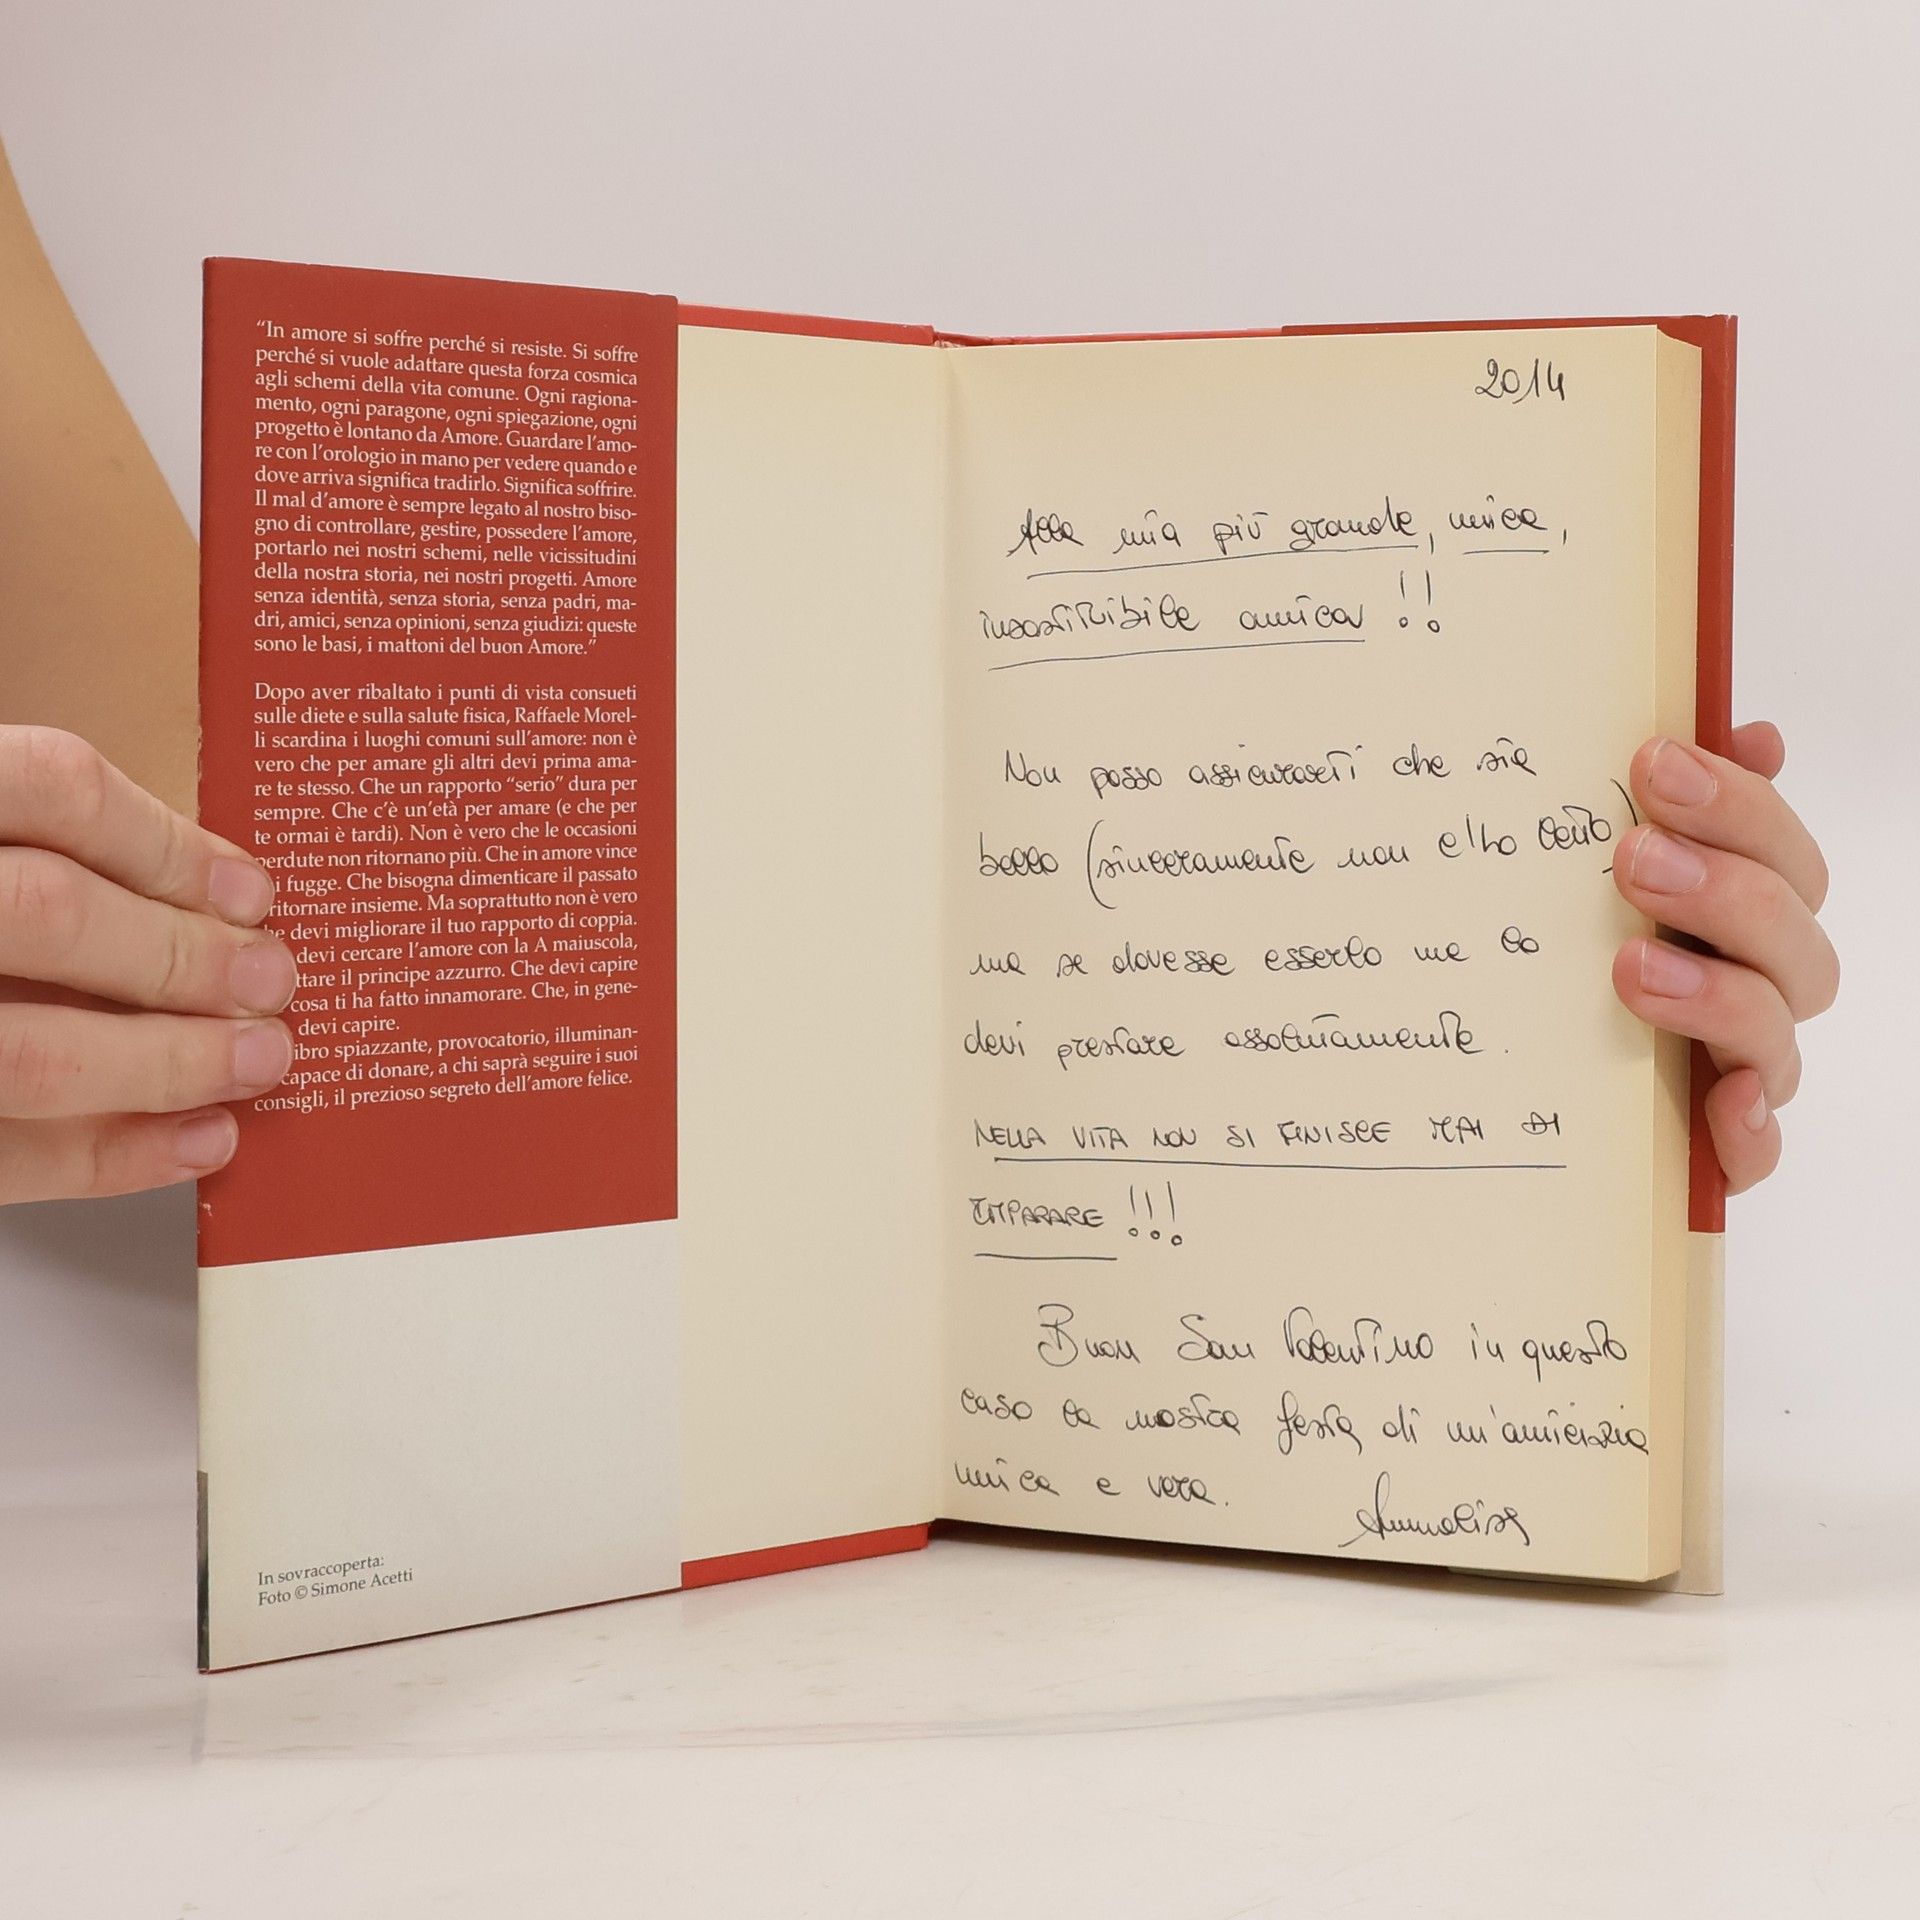 “In amore si soffre perché si resiste. Si soffre
perché si vuole adattare questa forza cosmica
agli schemi della vita comune. Ogni ragiona-
mento, ogni paragone, ogni spiegazione, ogni
progetto è lontano da Amore. Guardare l'amo-
re con l'orologio in mano per vedere quando e
dove arriva significa tradirlo. Significa soffrire.
Il mal d'amore è sempre legato al nostro biso-
gno di controllare, gestire, possedere l'amore,
portarlo nei nostri schemi, nelle vicissitudini
della nostra storia, nei nostri progetti. Amore
senza identità, senza storia, senza padri, ma-
dri, amici, senza opinioni, senza giudizi: queste
sono le basi, i mattoni del buon Amore.”
Dopo aver ribaltato i punti di vista consueti
sulle diete e sulla salute fisica, Raffaele Morel-
li scardina i luoghi comuni sull'amore: non è
vero che per amare gli altri devi prima ama-
re te stesso. Che un rapporto “serio” dura per
sempre. Che c'è un'età per amare (e che per
te ormai è tardi). Non è vero che le occasioni
perdute non ritornano più. Che in amore vince
i fugge. Che bisogna dimenticare il passato
ritornare insieme. Ma soprattutto non è vero
he devi migliorare il tuo rapporto di coppia.
devi cercare l'amore con la A maiuscola,
ttare il principe azzurro. Che devi capire
cosa ti ha fatto innamorare. Che, in gene-
devi capire.
ibro spiazzante, provocatorio, illuminan-
capace di donare, a chi saprà seguire i suoi
consigli, il prezioso segreto dell'amore felice.
In sovraccoperta:
Foto © Simone Acetti
2014
Alla mia più grande, unica,
insostituibile amica!!
Non posso assicurarti che sia
bello (sinceramente non l'ho letto)
ma se dovesse esserlo me lo
devi prestare assolutamente.
NELLA VITA NON SI FINISCE MAI DI
IMPARARE!!!
Buon San Valentino in questo
caso la nostra festa di un'amicizia
unica e vera.
Annalisa